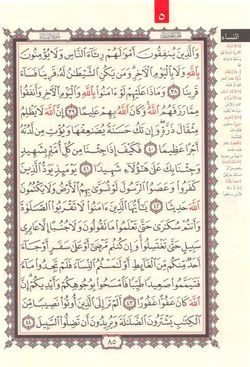 ٥
النساء
وَٱلَّذِينَ يُنفِقُونَ أَمْوَٰلَهُمْ رِئَآءَ ٱلنَّاسِ وَلَا يُؤْمِنُونَ
بِٱللَّهِ وَلَا بِٱلْيَوْمِ ٱلْءَاخِرِ وَمَن يَكُنِ ٱلشَّيْطَٰنُ لَهُۥ قَرِينًا فَسَآءَ
قَرِينًا ٣٨ وَمَاذَا عَلَيْهِمْ لَوْ ءَامَنُوا۟ بِٱللَّهِ وَٱلْيَوْمِ ٱلْءَاخِرِ وَأَنفَقُوا۟
مِمَّا رَزَقَهُمُ ٱللَّهُ وَكَانَ ٱللَّهُ بِهِمْ عَلِيمًا ٣٩ إِنَّ ٱللَّهَ لَا يَظْلِمُ
مِثْقَالَ ذَرَّةٍ وَإِن تَكُ حَسَنَةً يُضَٰعِفْهَا وَيُؤْتِ مِن لَّدُنْهُ
أَجْرًا عَظِيمًا ٤٠ فَكَيْفَ إِذَا جِئْنَا مِن كُلِّ أُمَّةٍۭ بِشَهِيدٍ
وَجِئْنَا بِكَ عَلَىٰ هَٰٓؤُلَآءِ شَهِيدًا ٤١ يَوْمَئِذٍ يَوَدُّ ٱلَّذِينَ
كَفَرُوا۟ وَعَصَوُا۟ ٱلرَّسُولَ لَوْ تُسَوَّىٰ بِهِمُ ٱلْأَرْضُ وَلَا يَكْتُمُونَ
ٱللَّهَ حَدِيثًا ٤٢ يَٰٓأَيُّهَا ٱلَّذِينَ ءَامَنُوا۟ لَا تَقْرَبُوا۟ ٱلصَّلَوٰةَ
وَأَنتُمْ سُكَٰرَىٰ حَتَّىٰ تَعْلَمُوا۟ مَا تَقُولُونَ وَلَا جُنُبًا إِلَّا عَابِرِى
سَبِيلٍ حَتَّىٰ تَغْتَسِلُوا۟ وَإِن كُنتُم مَّرْضَىٰٓ أَوْ عَلَىٰ سَفَرٍ أَوْ جَآءَ
أَحَدٌ مِّنكُم مِّنَ ٱلْغَآئِطِ أَوْ لَٰمَسْتُمُ ٱلنِّسَآءَ فَلَمْ تَجِدُوا۟ مَآءً
فَتَيَمَّمُوا۟ صَعِيدًا طَيِّبًا فَٱمْسَحُوا۟ بِوُجُوهِكُمْ وَأَيْدِيكُمْ إِنَّ
ٱللَّهَ كَانَ عَفُوًّا غَفُورًا ٤٣ أَلَمْ تَرَ إِلَى ٱلَّذِينَ أُوتُوا۟ نَصِيبًا مِّنَ
ٱلْكِتَٰبِ يَشْتَرُونَ ٱلضَّلَٰلَةَ وَيُرِيدُونَ أَن تَضِلُّوا۟ ٱلسَّبِيلَ ٤٤
٨٥